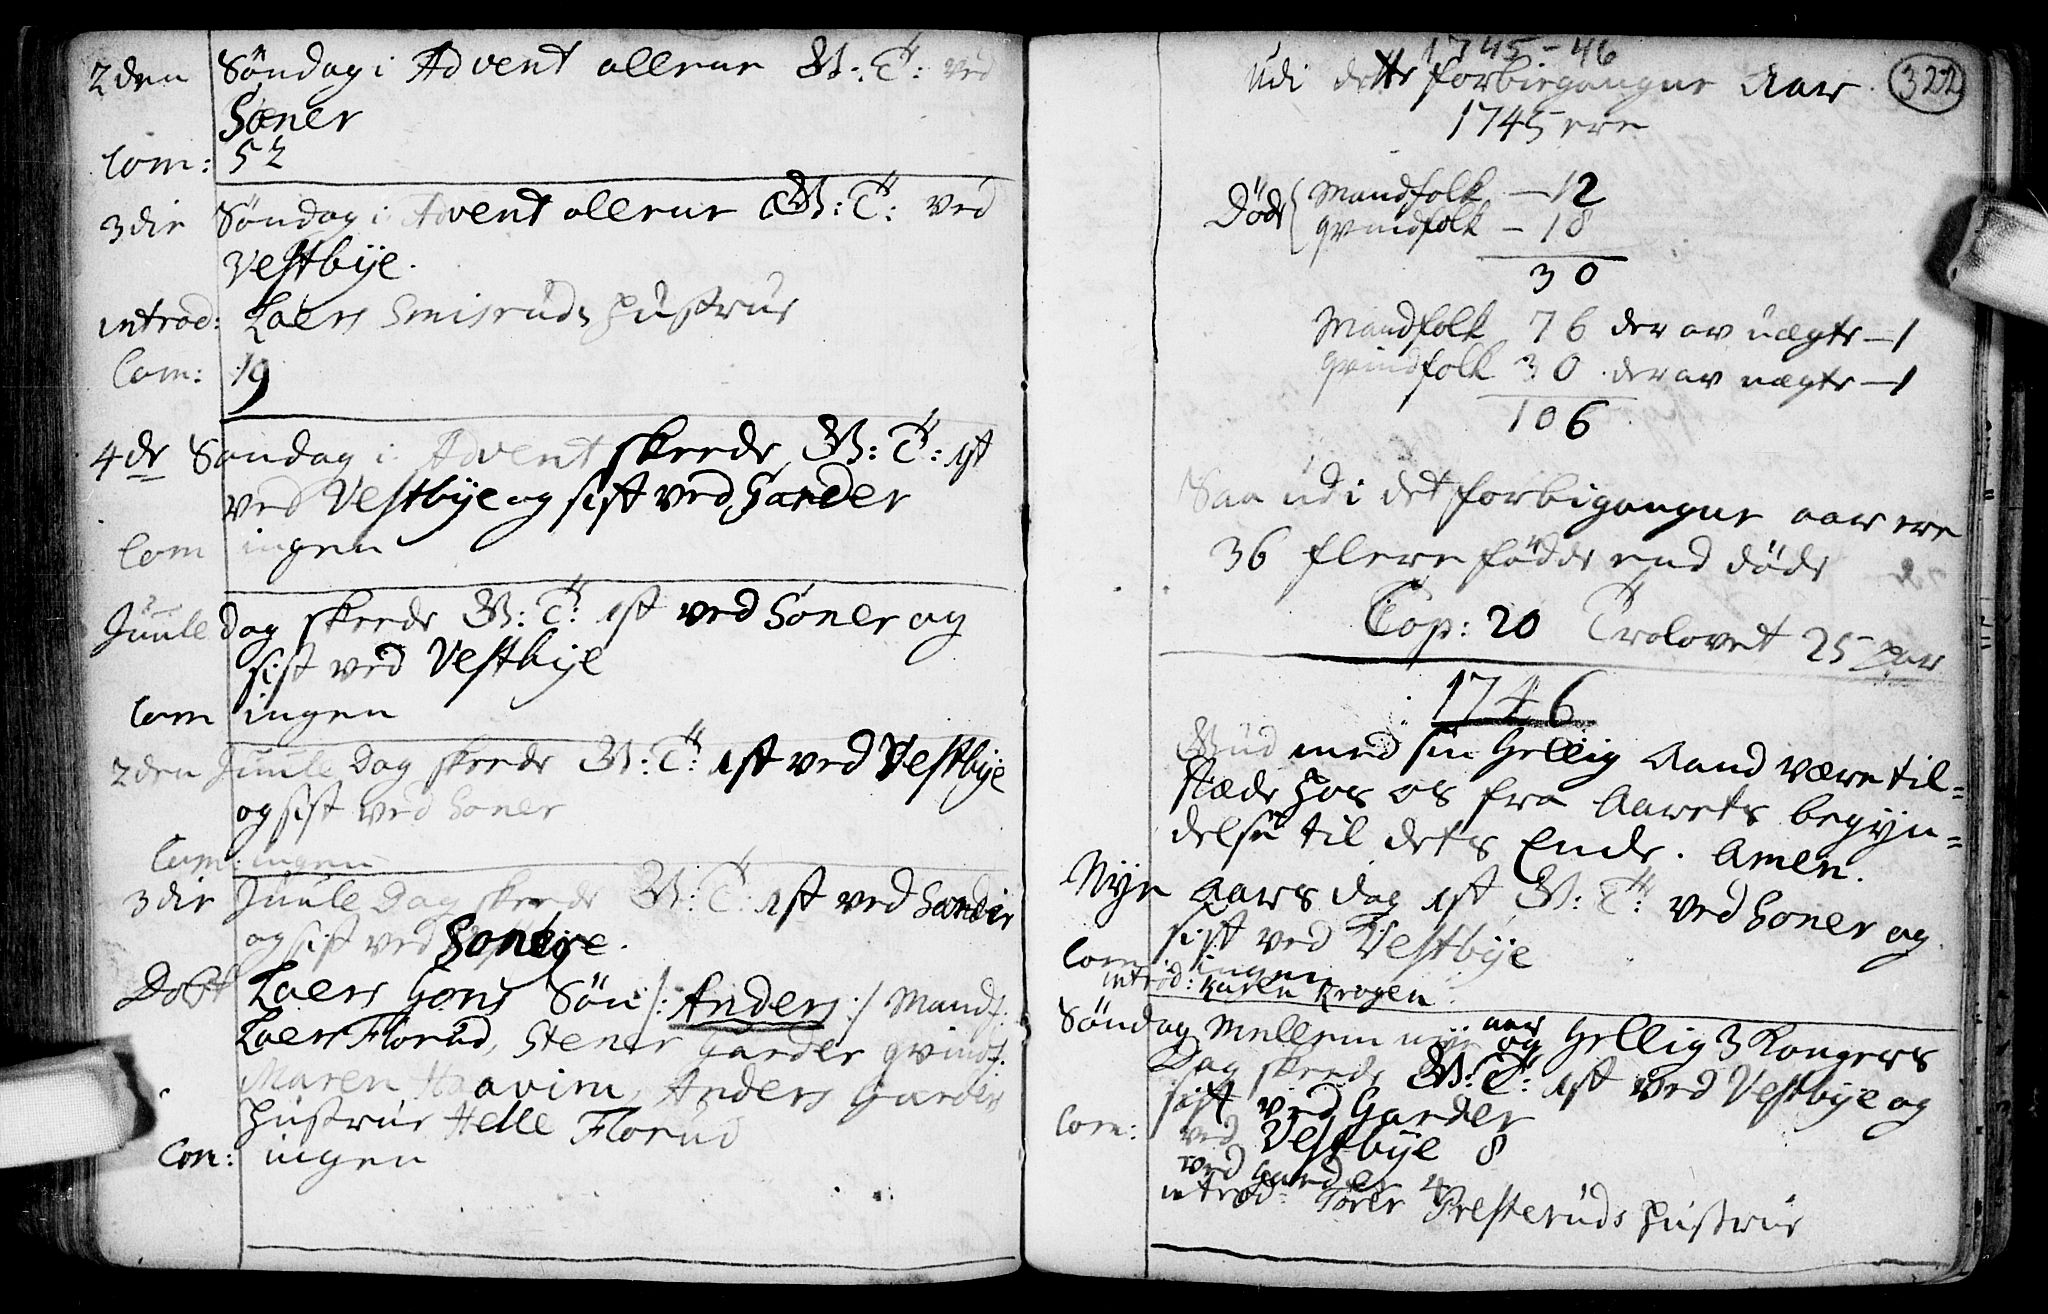 2den Søndag i Advent allene G: T: ved
Søner
Com: 52
3die Søndag i Advent allene G: T: ved
Vestbÿe.
introd: Laers Smisrüds Hustrue
Com: 19
4de Søndag i Advent skeede G: T: 1st
ved Vestbÿe og sist ved Garder
Com ingen
Juule Dag skeede G: T: 1st ved Soner og
sist ved Vestbÿe
Com ingen
2den Juule Dag skeede G: T: 1st ved Vestbÿe
og sist ved Soner
Com: ingen
3die Juule Dag skeede G: T: 1st ved Garder
og sist ved
Døbt Laers Søn /: Anders :/ Mandf:
Laers Florüd, Stener Garder qvindf:
Maren Anders Garder
Hustrue Helle Florüd
Com: ingen
1745-46
322
Udi dette forbiegangne Aar
1745 ere
Døde { Mandfolk — 12
qvindfolk — 18
30
Mandfolk 76 der av uægte — 1
Qvindfolk 30 der av uægte — 1
106
Saa udi det forbigangne aar ere
36 flere fødde end døde
Cop: 20 Trolovet 25 par
1746
Gud med sin Hellig Aand være til=
stæde hos os fra Aarets begÿn=
delse til dets Ende. Amen.
Nÿe Aars Dag 1st G: T: ved Soner og
sist ved Vestbÿe
Com ingen
introd: Karen Krogen
Søndag Mellem nÿe aar og Hellig 3 Kongers
Dag skeede G: T: 1st ved Vestbÿe og
sist ved Garder
Com: ved Vestbÿe 8
ved Garder 4
introd: Torer Presterüds Hustrue